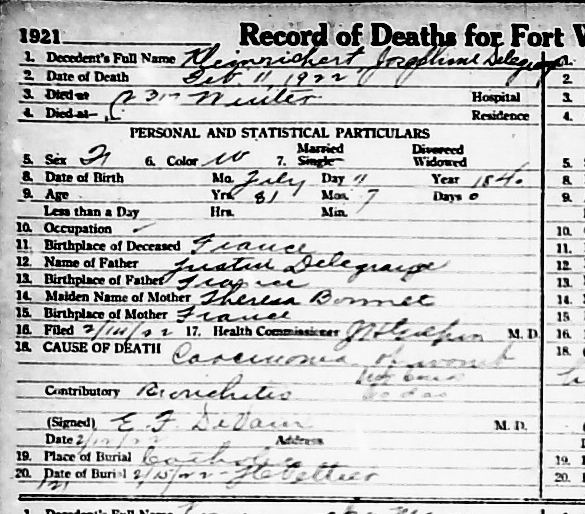 1921 Record of Deaths for Fort W
1. Decedent's Full Name Kleinrichert Josephine Delegrange
2. Date of Death Feb. 11 1922
3. Died at 2317 Winter Hospital
4. Died at Residence
PERSONAL AND STATISTICAL PARTICULARS
5. Sex F 6. Color W 7. Married Single Divorced Widowed
8. Date of Birth Mo. July Day 11 Year 1840
9. Age Yrs. 81 Mos. 7 Days 0
Less than a Day Hrs. Min.
10. Occupation
11. Birthplace of Deceased France
12. Name of Father Justin Delegrange
13. Birthplace of Father France
14. Maiden Name of Mother Theresa Bonnet
15. Birthplace of Mother France
16. Filed 2/14/22 17. Health Commissioner M. D.
18. CAUSE OF DEATH Carcinoma of womb
Contributory Bronchitis
(Signed) E. F. M. D.
Date 2/12/22 Address
19. Place of Burial Catholic
20. Date of Burial 2/15/22
1. Decedent's Full Name
1.
2.
3.
4.
5.
8.
9.
10.
11.
12.
13.
14.
15.
16.
18.
19.
20.